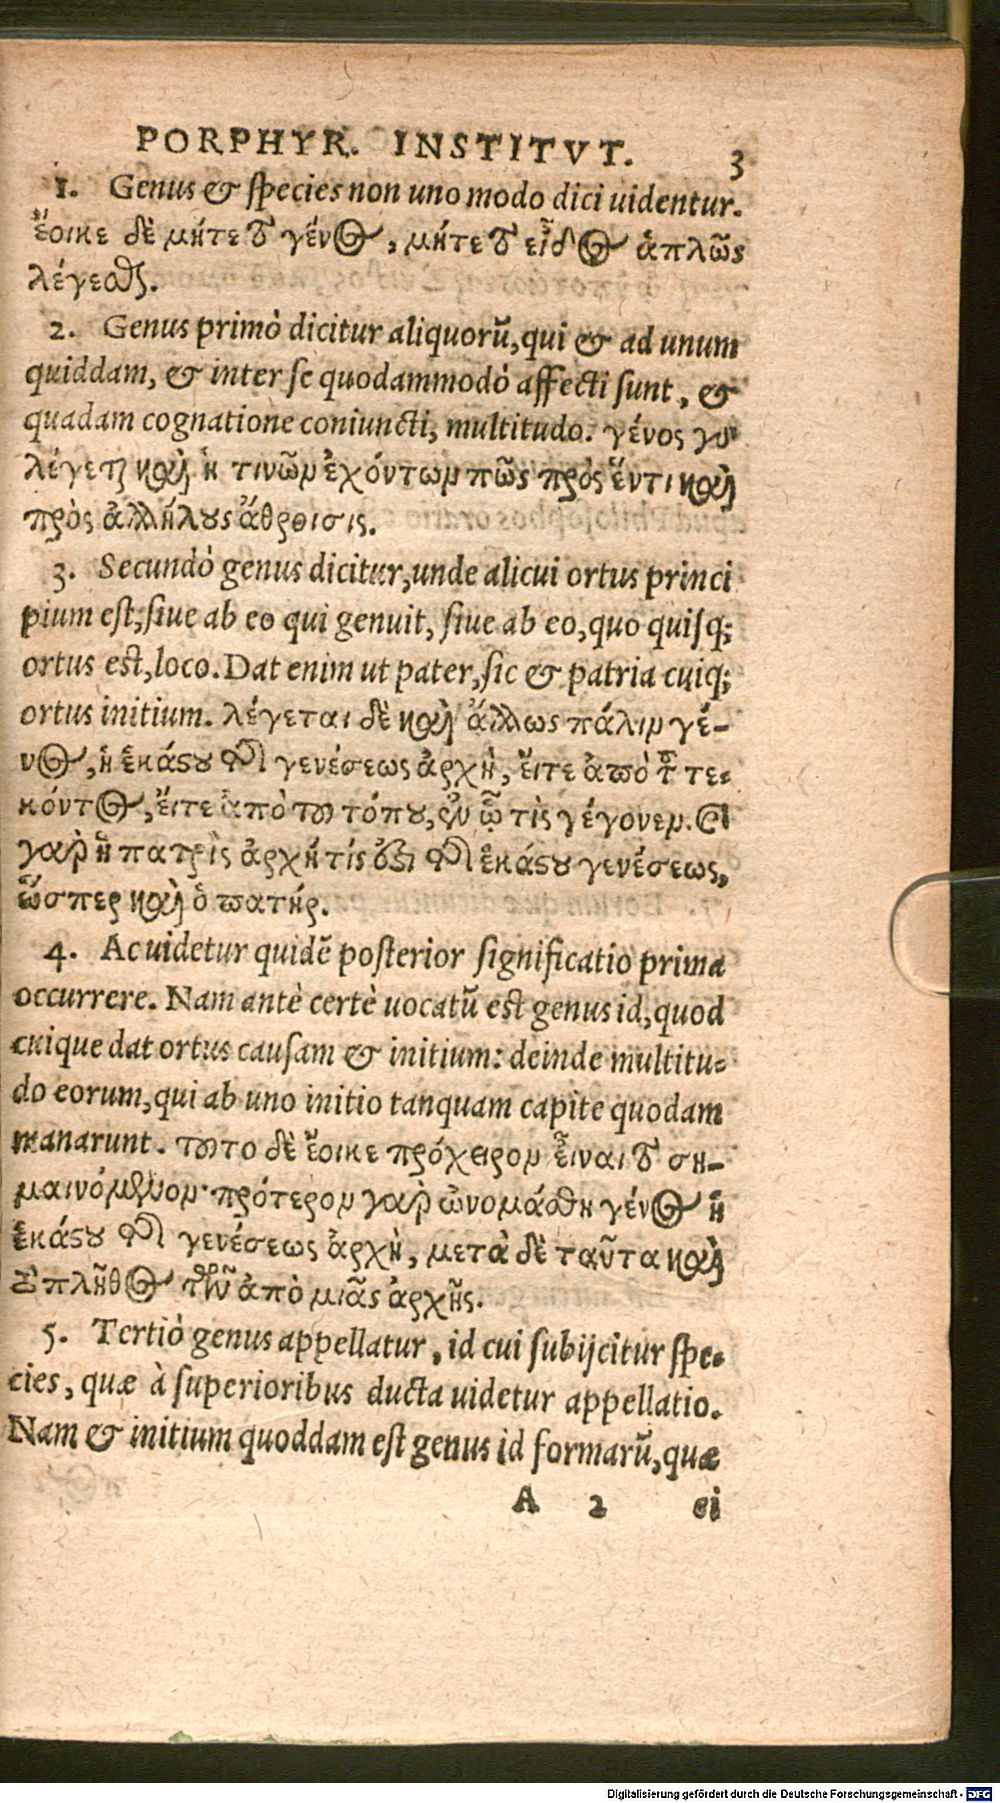 PORPHYR. INSTITVT. 3
1. Genus & species non uno modo dici uidentur.
ἔοικε δὲ μήτε τὸ γένος, μήτε τὸ εἶδος ἁπλῶς
λέγεσθαι.
2. Genus primò dicitur aliquorũ, qui & ad unum
quiddam, & inter se quodammodó affecti sunt, &
quadam cognatione coniuncti, multitudo. γένος γὰρ
λέγεται καὶ ἡ τινῶν ἐχόντων πῶς πρὸς ἕν τι καὶ
πρὸς ἀλλήλους ἄθροισις.
3. Secundó genus dicitur, unde alicui ortus princi
pium est, siue ab eo qui genuit, siue ab eo, quo quisq;
ortus est, loco. Dat enim ut pater, sic & patria cuiq;
ortus initium. λέγεται δὲ καὶ ἄλλως πάλιν γέ-
νος, ἡ ἑκάστου τῆς γενέσεως ἀρχὴ, εἴτε ἀπὸ τοῦ τε-
κόντος, εἴτε ἀπὸ τοῦ τόπου, ἐν ᾧ τὶς γέγονεν. καὶ
γὰρ ἡ πατρὶς ἀρχή τίς ἐστι τῆς ἑκάστου γενέσεως,
ὥσπερ καὶ ὁ πατήρ.
4. Ac uidetur quidẽ posterior significatio prima
occurrere. Nam antè certè uocatũ est genus id, quod
cuique dat ortus causam & initium: deinde multitu-
do eorum, qui ab uno initio tanquam capite quodam
manarunt. τοῦτο δὲ ἔοικε πρόχειρον εἶναι τὸ ση-
μαινόμενον· πρότερον γὰρ ὠνομάσθη γένος ἡ
ἑκάστου τῆς γενέσεως ἀρχὴ, μετὰ δὲ ταῦτα καὶ
τὸ πλῆθος τῶν ἀπὸ μιᾶς ἀρχῆς.
5. Tertiò genus appellatur, id cui subijcitur spe-
cies, quæ à superioribus ducta uidetur appellatio.
Nam & initium quoddam est genus id formarũ, quæ
A 2 ei
Digitalisierung gefördert durch die Deutsche Forschungsgemeinschaft - DFG